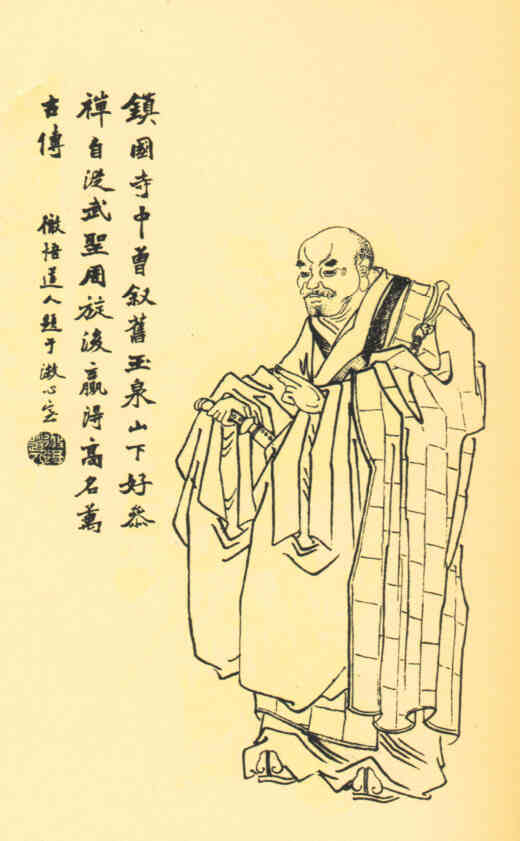 鎮國寺中曾叙舊玉泉山下好參
禪自從武聖周旋後贏得高名萬
古傳
徹悟道人題于澂心室